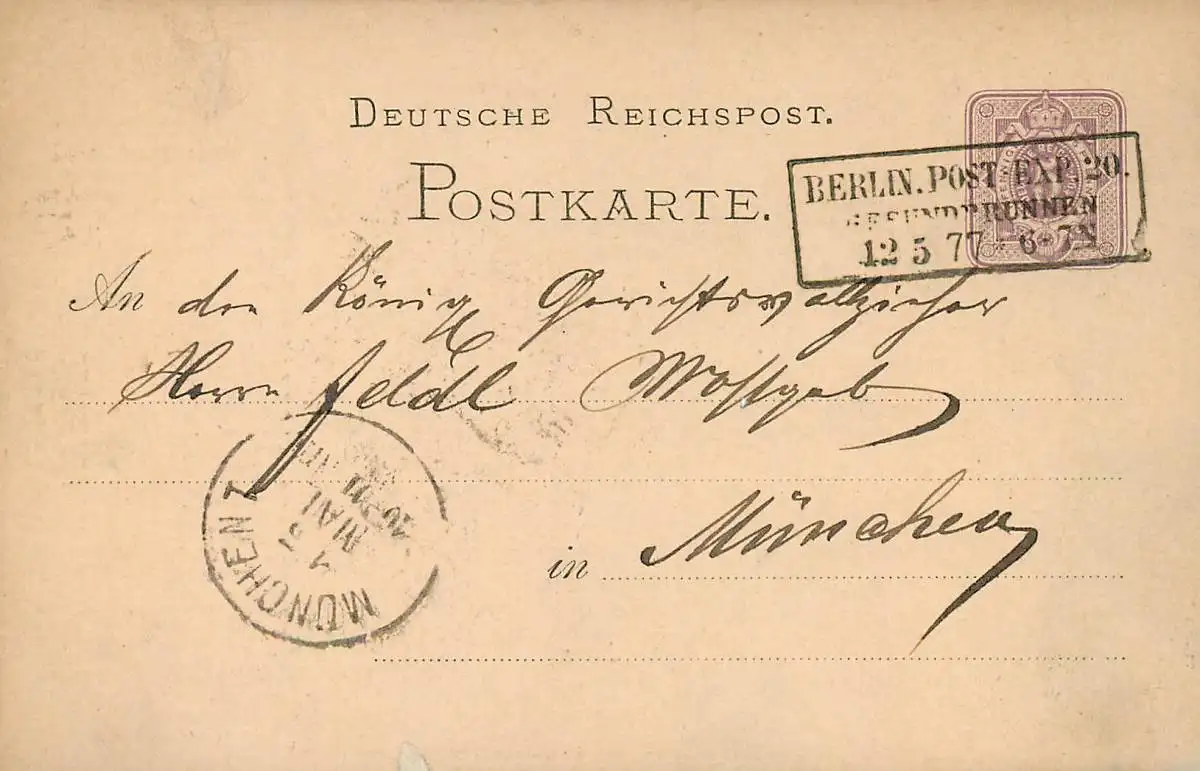 DEUTSCHE REICHSPOST.
POSTKARTE.
BERLIN. POST EXP 20.
GESUNDBRUNNEN
12 5 77 6-7N
An den König Gerichtsvollzieher
Herrn
MÜNCHEN I
MAI
in München